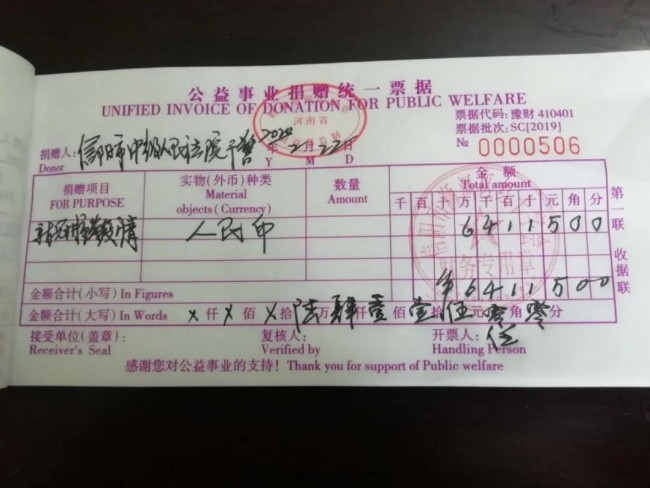 公益事业捐赠统一票据
UNIFIED INVOICE OF DONATION FOR PUBLIC WELFARE
河南省
票据代码: 豫财 410401
票据批次: SC[2019]
№ 0000506
捐赠人: 信阳市中级人民法院干警 2020 年 2 月 22 日
Donor Y M D
捐赠项目 实物(外币)种类 数量 金额
FOR PURPOSE Material objects (Currency) Amount Total amount
千 百 十 万 千 百 十 元 角 分
人民币 6 4 1 1 5 0 0
财务专用章
金额合计(小写) In Figures ¥ 6 4 1 1 5 0 0
金额合计(大写) In Words × 仟 × 佰 × 拾 陆 万 肆 仟 壹 佰 壹 拾 伍 元 零 角 零 分
接受单位(盖章): 复核人: 开票人: 伍
Receiver's Seal Verified by Handling Person
感谢您对公益事业的支持! Thank you for support of Public welfare
第一联 收据联